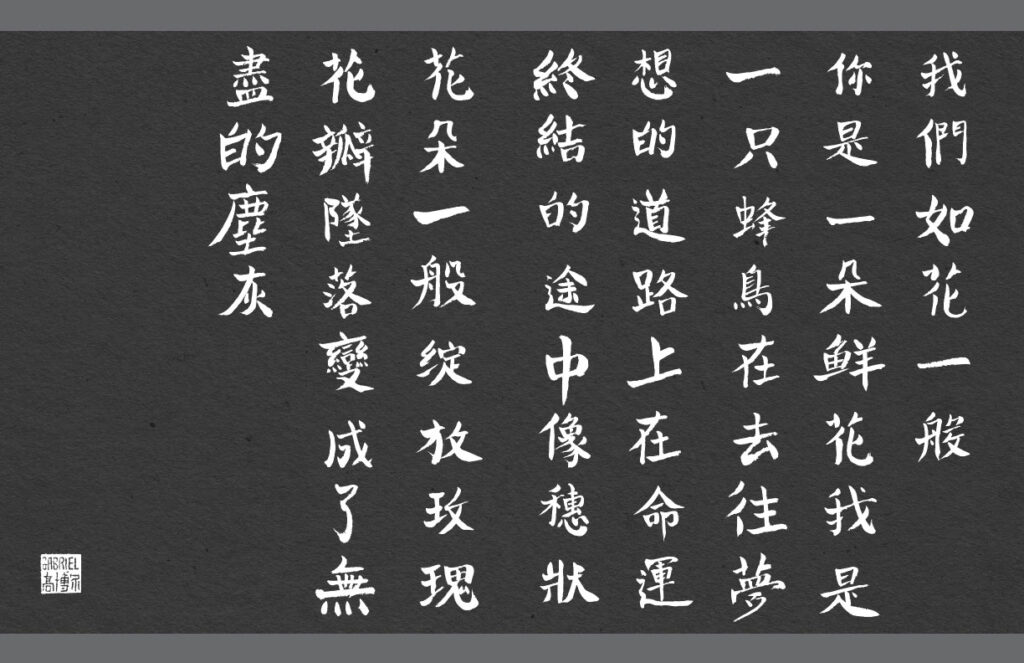 我們如花一般
你是一朵鮮花我是
一只蜂鳥在去往夢
想的道路上在命運
終結的途中像穗狀
花朵一般绽放玫瑰
花瓣墜落變成了無
盡的塵灰
GABRIEL
高博尔